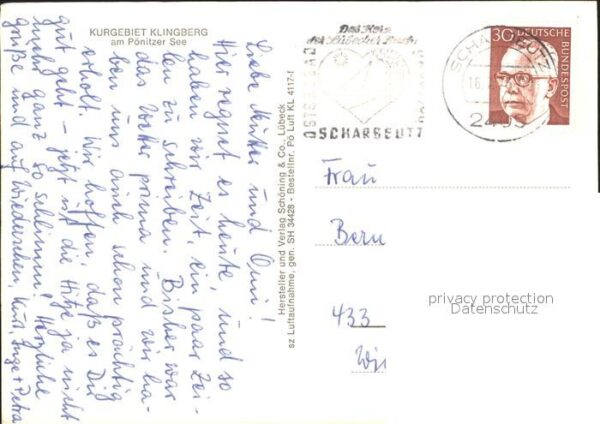 KURGEBIET KLINGBERG
am Pönitzer See
Liebe Mutter und Omi!
Hier regnet es heute, und so
haben wir Zeit, ein paar Zei-
len zu schreiben. Bisher war
das Wetter prima und wir ha-
ben uns auch schon prächtig
erholt. Wir hoffen, daß es Dir
gut geht - jetzt ist die Hitze ja nicht
mehr ganz so schlimm. Herzliche
Grüße und auf Wiedersehen, Inge + Petra
Hersteller und Verlag Schöning & Co., Lübeck
sz Luftaufnahme, gen. SH 34428 - Bestellnr. Pö Luft KL 4117-f
Das Herz
der Lübecker Bucht
OSTSEEBAD
SCHARBEUTZ
SCHARBEUTZ
16.
30
DEUTSCHE
BUNDESPOST
Frau
Bern
433
privacy protection
Datenschutz